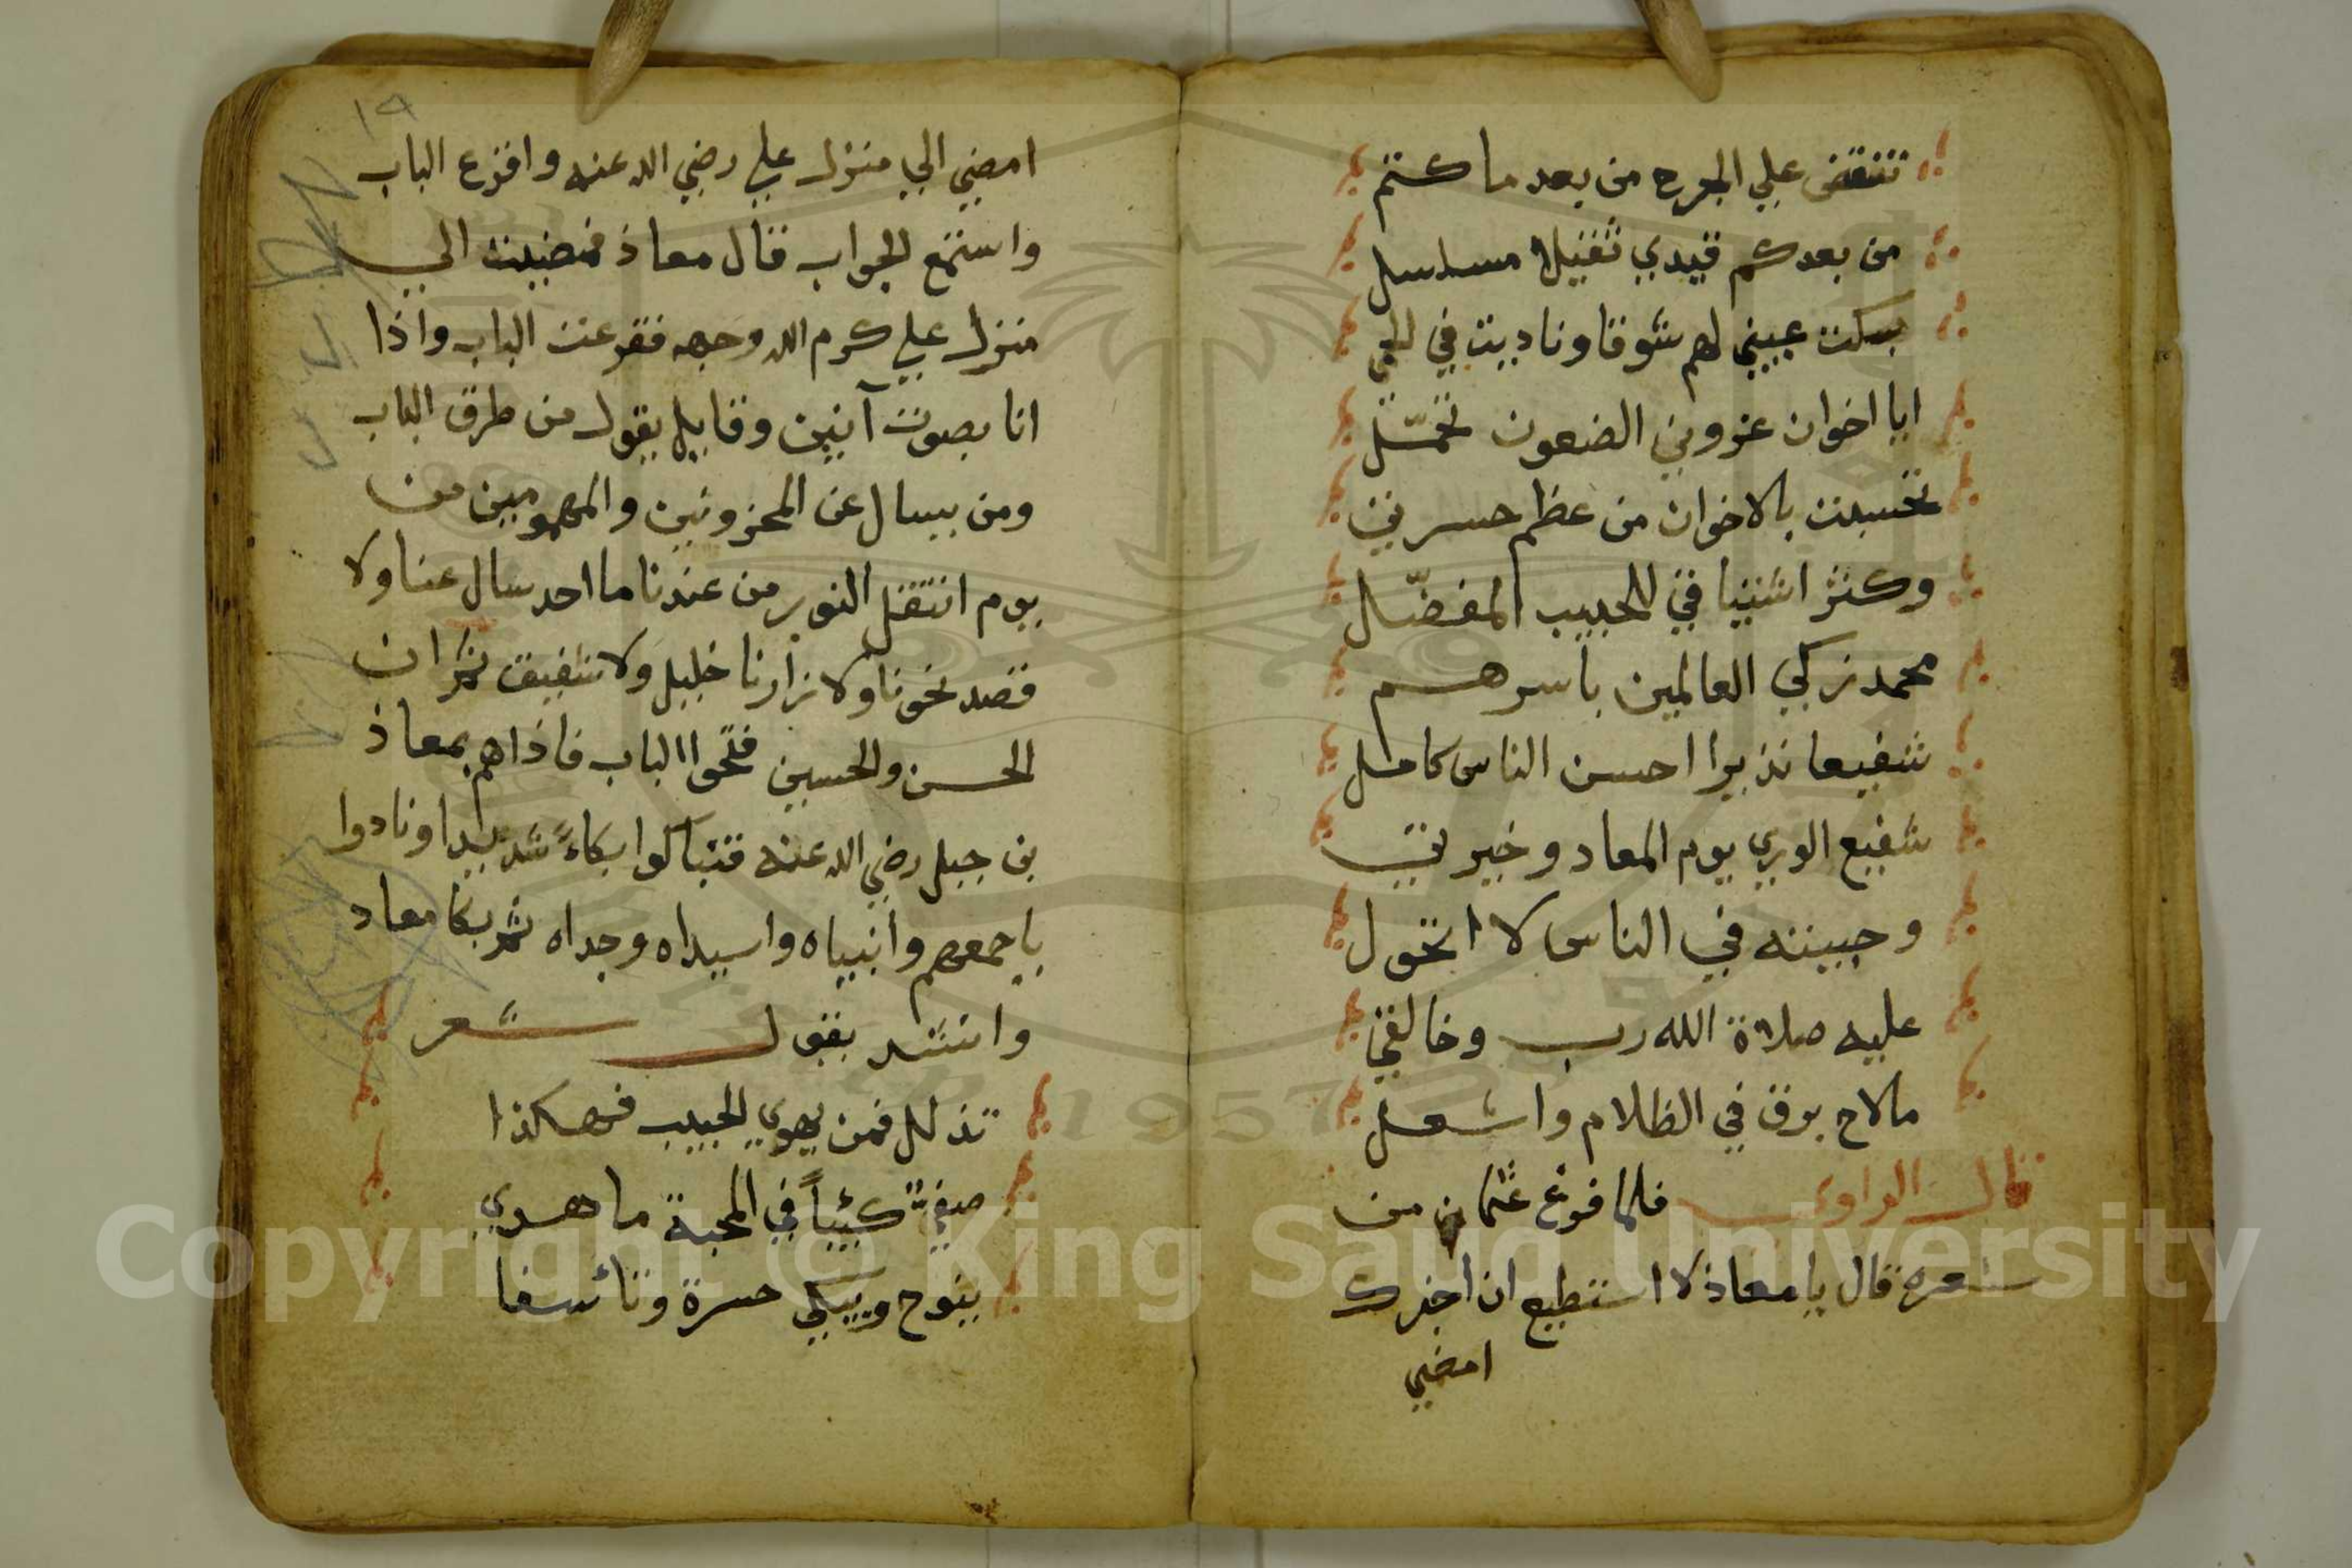 تنقض علي الجرح من بعد ما كنتم
من بعدكم قيدي ثقيلا مسلسل
بكت عيني لهم شوقا وناديت في
ايا اخوان عزوني الضعون تحمّل
تحسبت بالاخوان من عظم حسرتي
وكثر اشتياقي للحبيب المفضّل
محمد زكي العالمين باسرهم
شفيعا نذيرا احسن الناس كامل
شفيع الوري يوم المعاد وخيرتي
وحبيته في الناس لا اتحول
عليه صلاة الله رب وخالقي
مالاح برق في الظلام واشعل
قال الراوي فلما فرغ عثمان من
شعره قال يا معاذ لا استطيع ان اخبرك
امضي
١٩
امضي الي منزل علي رضي الله عنه واقرع الباب
واستمع الجواب قال معاذ فمضيت الي
منزل علي كرم الله وجهه فقرعت الباب واذا
انا بصوت آنين وقايل يقول من طرق الباب
ومن يسال عن المحزونين والمهمومين من
يوم انتقل النور من عندنا ما احد سال عنا ولا
قصد نحونا ولا زارنا خليل ولا شفيق ثم ان
الحسن والحسين فتحوا الباب فاذا هم بمعاذ
بن جبل رضي الله عنه فتباكوا بكاءً شديدا ونادوا
باجمعهم وانبياه واسيداه وجداه ثم بكا معاد
وانشد يقول شعر
تذلل فمن يهوي الحبيب فهكذا
كئيباً في المحبة ما هدي
ينوح ويبكي حسرة وتأسفا
Copyright © King Saud University
1957